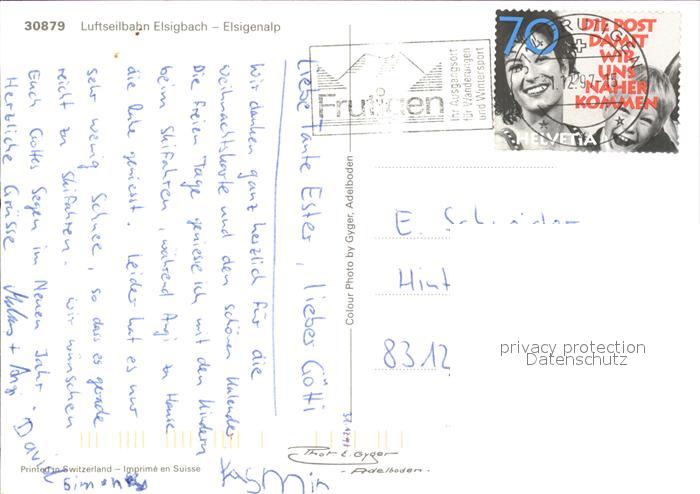 30879 Luftseilbahn Elsigbach – Elsigenalp
Liebe Tante Ester, lieber Götti
Wir danken ganz herzlich für die
Weihnachtskarte und den schönen Kalender
Die freien Tage geniesse ich mit den Kindern
beim Skifahren, während Angi zu Hause
die Ruhe geniesst. Leider hat es nur
sehr wenig Schnee, so dass es gerade
reicht zu Skifahren. Wir wünschen
Euch Gottes Segen im Neuen Jahr.
Herzliche Grüsse Markus + Angi
David
Simon
Yasmin
Printed in Switzerland – Imprimé en Suisse
Colour Photo by Gyger, Adelboden
Frutigen
Ihr Ausgangsort
für Wanderungen
und Wintersport
FRUTIGEN
70
DIE POST
DAMIT
WIR
UNS
NÄHER
KOMMEN
HELVETIA
E.
Hint
8312
privacy protection
Datenschutz
Phot E. Gyger
- Adelboden -